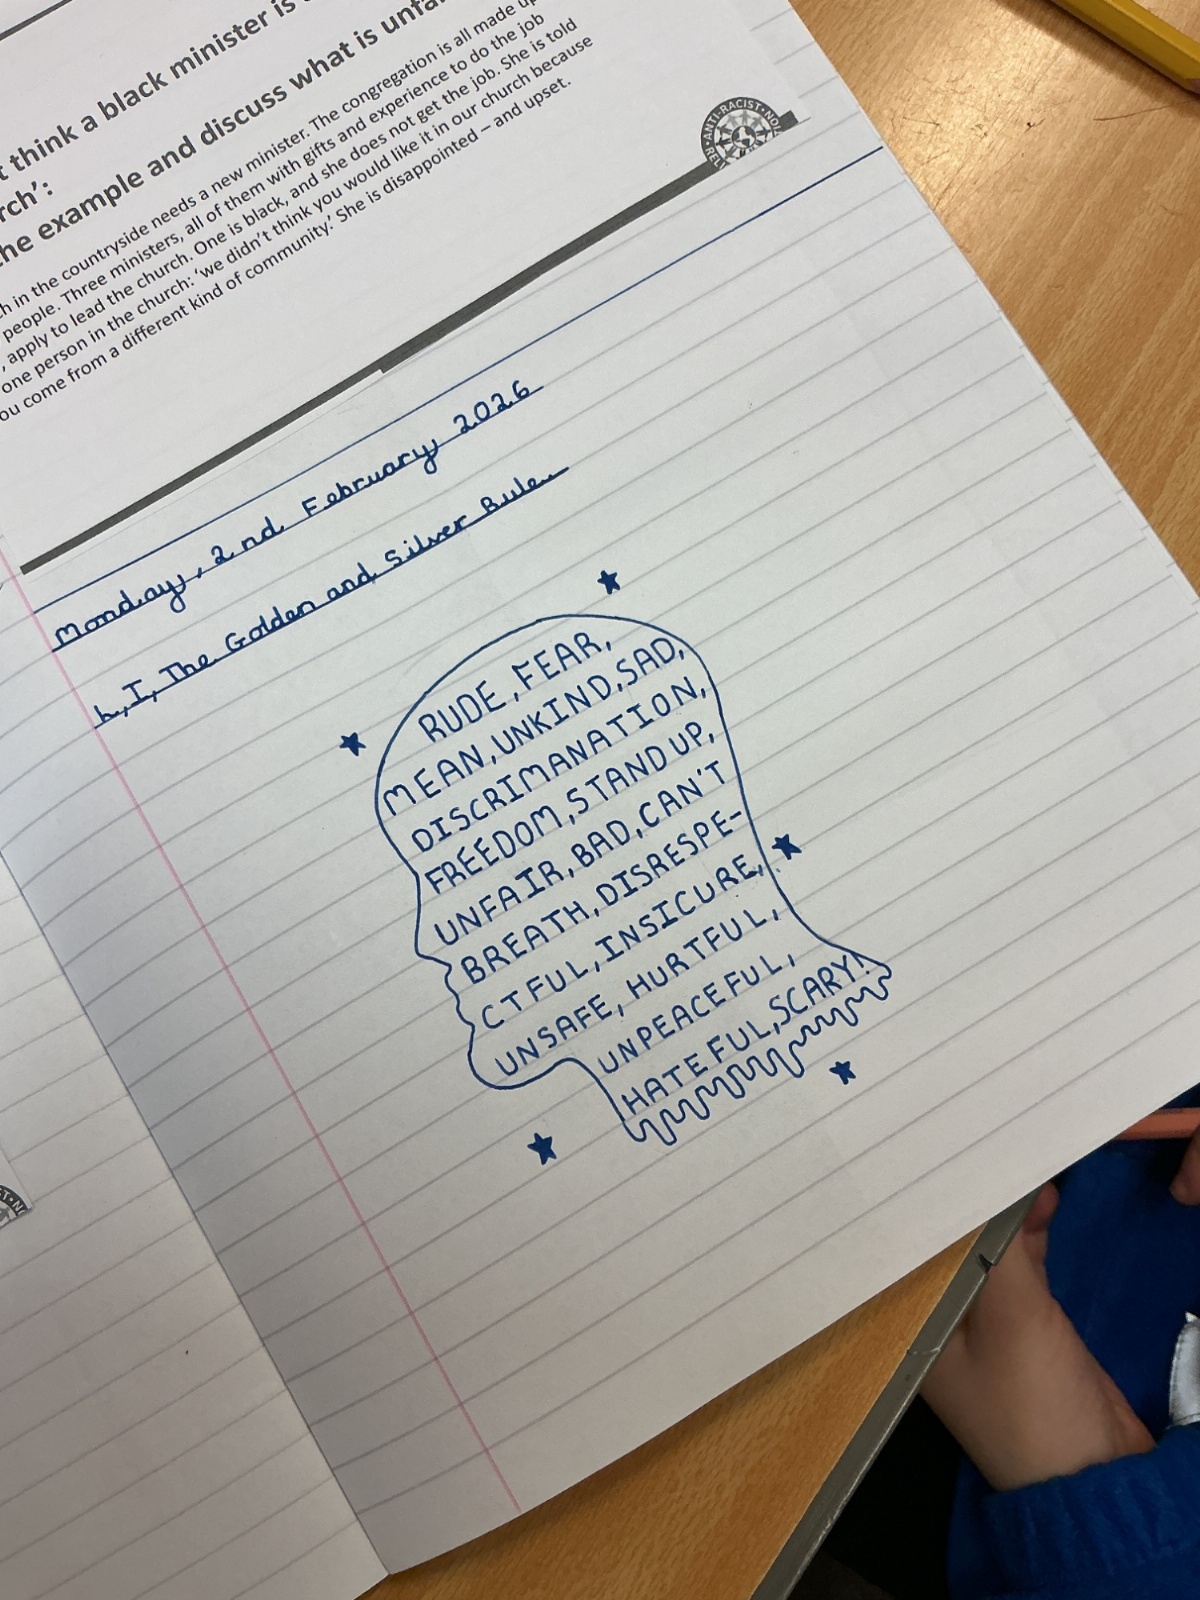 t think a black minister is
rch':
the example and discuss what is unfa
h in the countryside needs a new minister. The congregation is all made up
people. Three ministers, all of them with gifts and experience to do the job
, apply to lead the church. One is black, and she does not get the job. She is told
one person in the church: 'we didn't think you would like it in our church because
ou come from a different kind of community.' She is disappointed – and upset.
ANTI-RACIST
Monday, 2nd February 2026
L,I, The Golden and Silver Rule.
RUDE, FEAR,
MEAN, UNKIND, SAD,
DISCRIMANATION,
FREEDOM, STAND UP,
UNFAIR, BAD, CAN'T
BREATH, DISRESPE-
CTFUL, INSICURE,
UNSAFE, HURTFUL,
UNPEACEFUL,
HATEFUL, SCARY!